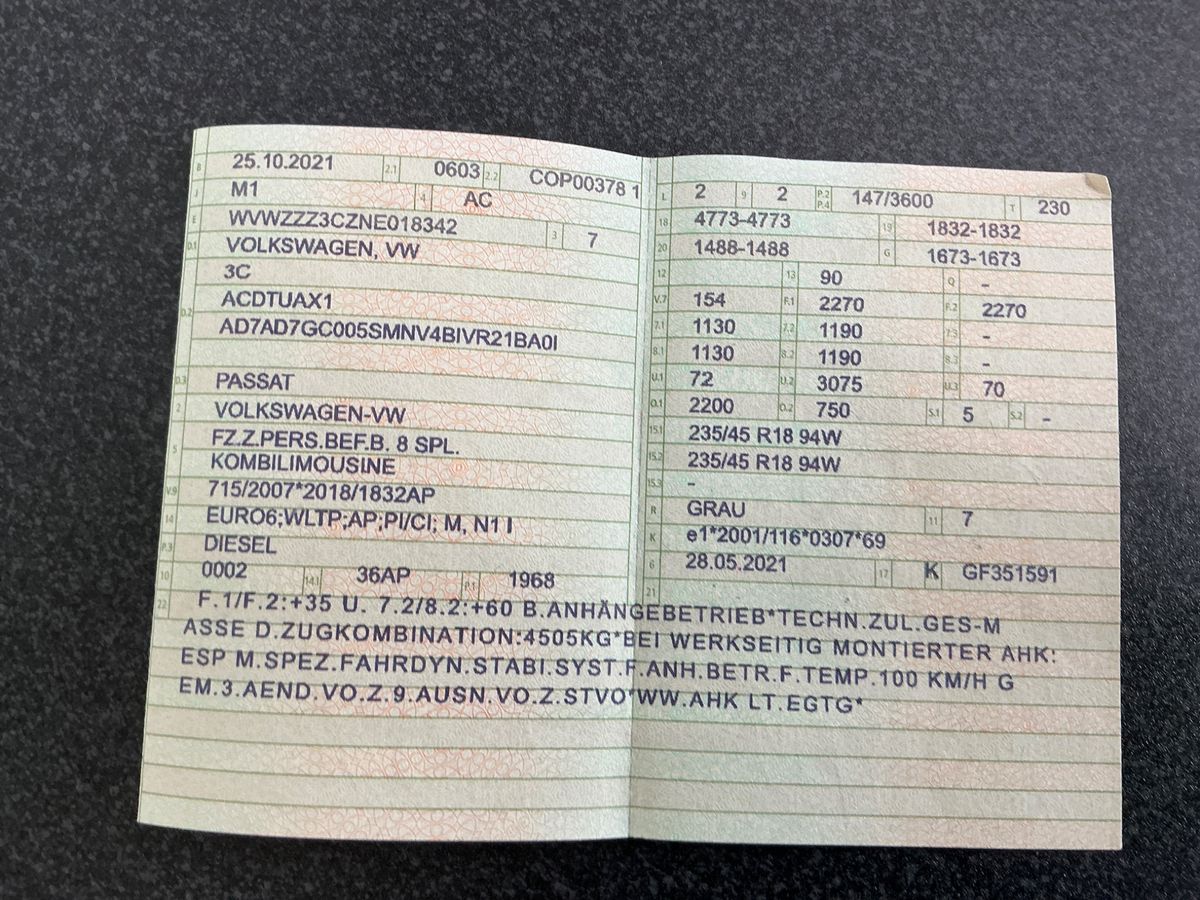 B 25.10.2021 2.1 0603 2.2 COP00378 1
J M1 4 AC
E WVWZZZ3CZNE018342 3 7
D.1 VOLKSWAGEN, VW
3C
D.2 ACDTUAX1
AD7AD7GC005SMNV4BIVR21BA0I
D.3 PASSAT
2 VOLKSWAGEN-VW
5 FZ.Z.PERS.BEF.B. 8 SPL.
KOMBILIMOUSINE
V.9 715/2007*2018/1832AP
14 EURO6;WLTP;AP;PI/CI; M, N1 I
P.3 DIESEL
10 0002 14.1 36AP P.1 1968
L 2 9 2 P.2 P.4 147/3600 T 230
18 4773-4773 19 1832-1832
20 1488-1488 G 1673-1673
12 13 90 Q -
V.7 154 F.1 2270 F.2 2270
7.1 1130 7.2 1190 7.3 -
8.1 1130 8.2 1190 8.3 -
U.1 72 U.2 3075 U.3 70
O.1 2200 O.2 750 S.1 5 S.2 -
15.1 235/45 R18 94W
15.2 235/45 R18 94W
15.3 -
R GRAU 11 7
K e1*2001/116*0307*69
6 28.05.2021 17 K GF351591
21
22 F.1/F.2:+35 U. 7.2/8.2:+60 B.ANHÄNGEBETRIEB*TECHN.ZUL.GES-M
ASSE D.ZUGKOMBINATION:4505KG*BEI WERKSEITIG MONTIERTER AHK:
ESP M.SPEZ.FAHRDYN.STABI.SYST.F.ANH.BETR.F.TEMP.100 KM/H G
EM.3.AEND.VO.Z.9.AUSN.VO.Z.STVO*WW.AHK LT.EGTG*